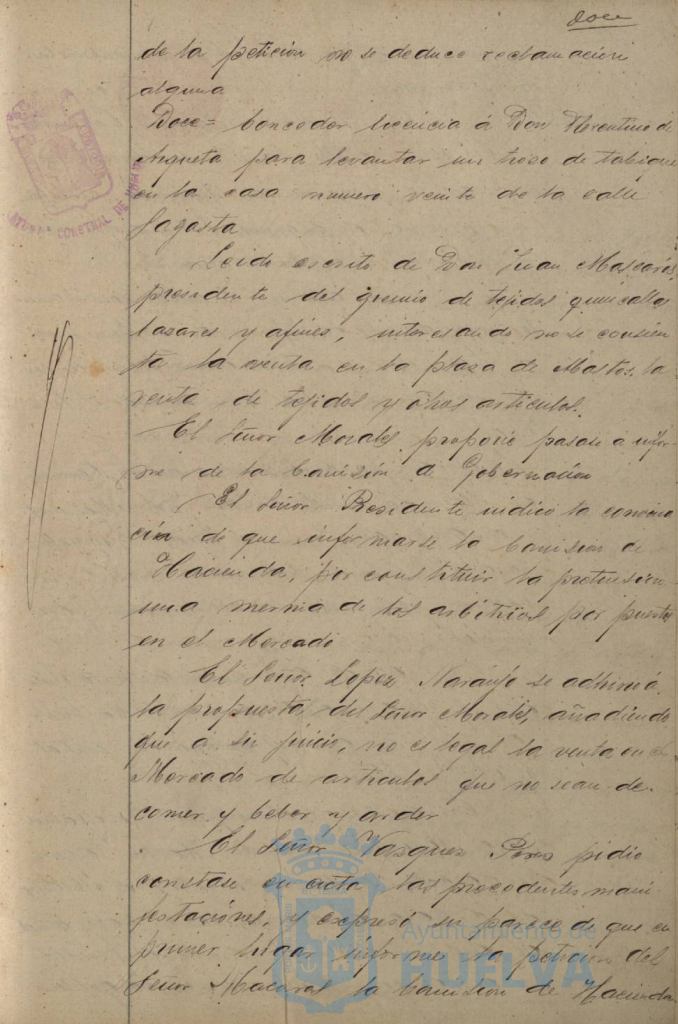 doce
de la peticion no se deduce reclamación
alguna
Doce= Conceder licencia á Don Florentino de
Azqueta para levantar un trozo de tabique
en la casa numero veinte de la calle
Sagasta
Leido escrito de Don Juan Mascarós,
presidente del gremio de tejidos quincallas
bazares y afines, interesando no se consien
ta la venta en la plaza de Abastos, la
venta de tejidos y otros articulos.
El Señor Morales propone pasase á infor
me de la Comisión de Gobernación
El Señor Presidente indicó la
de que informarse la Comision de
Hacienda, por constituir la pretension
una merma de los arbitrios por puestos
en el Mercado
El Señor Lopez Naranjo se adhirió á
la propuesta del Señor Morales, añadiendo
que á su juicio, no es legal la venta en el
Mercado de articulos que no sean de
comer y beber y arder
El Señor Vazquez Perez pidió
constase en acta las precedentes mani
festaciónes, y expresó su parecer de que en
primer lugar informe la peticion del
Señor Macarós la Comision de Hacienda
AYUNTAMIENTO CONSTNAL DE HUELVA
Ayuntamiento de
HUELVA